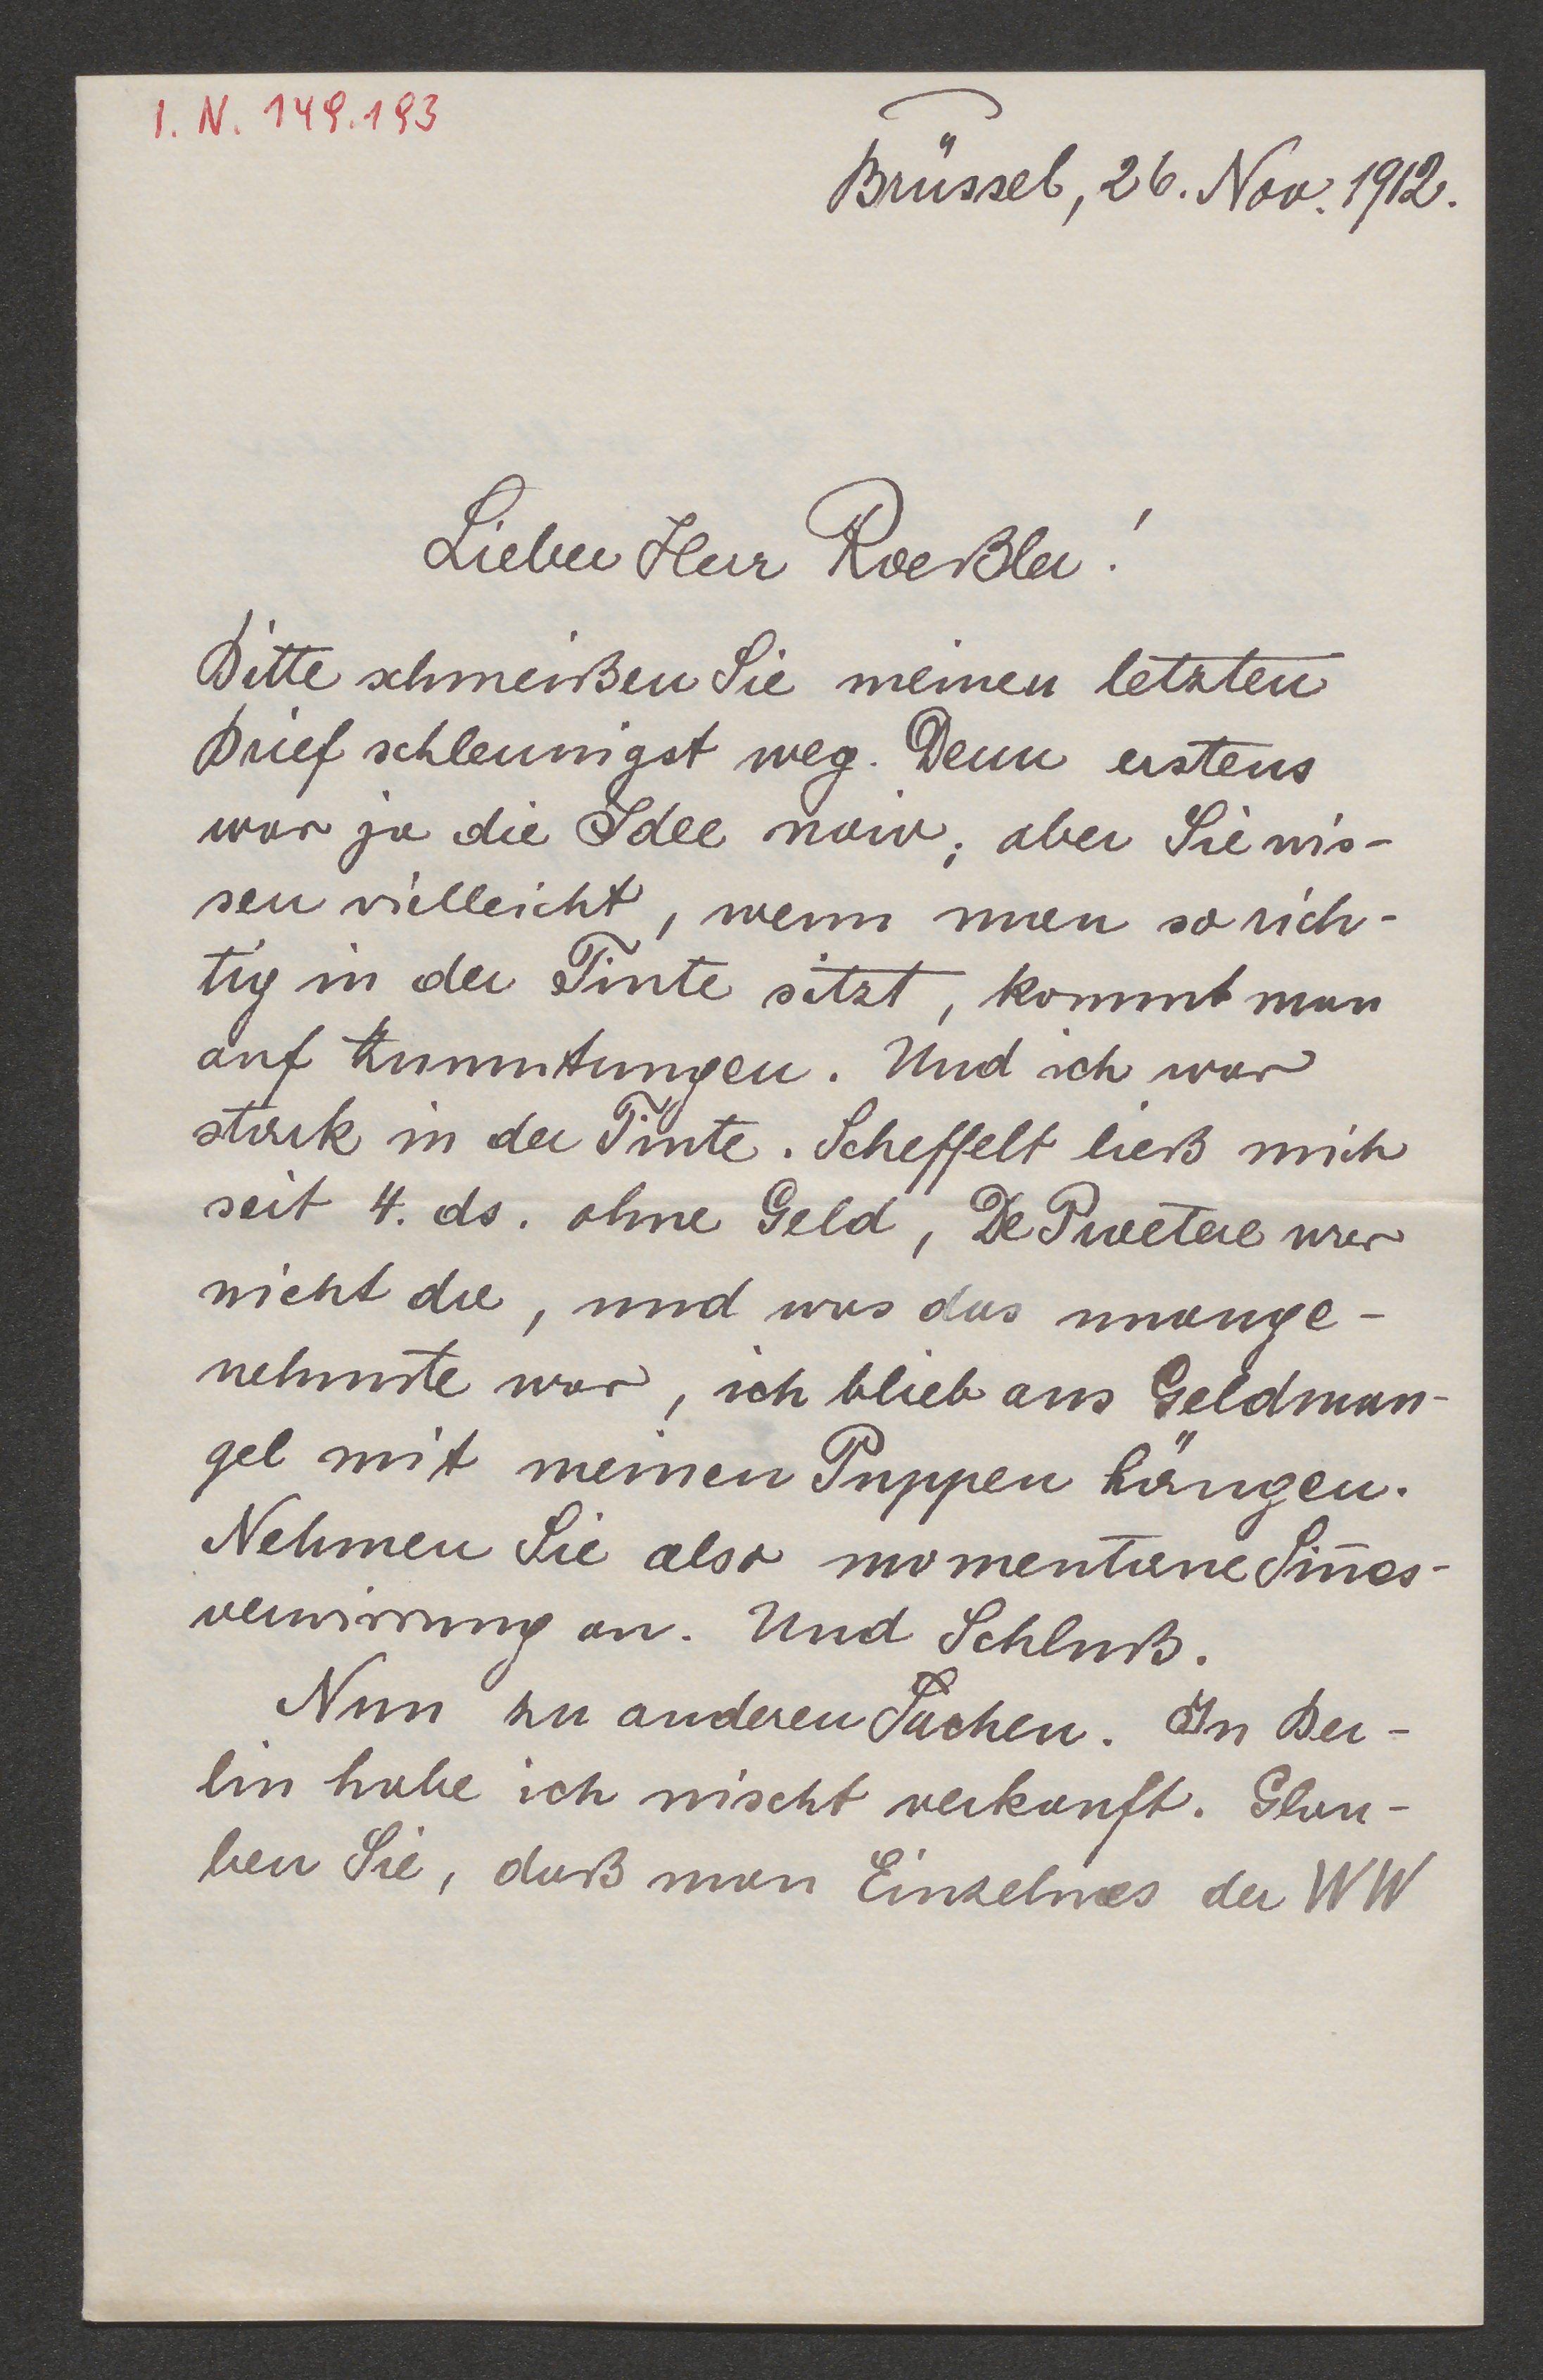 I. N. 149.193
Brüssel, 26. Nov. 1912.
Lieber Herr Roeßler!
Bitte schmeißen Sie meinen letzten
Brief schleunigst weg. Denn erstens
war ja die Idee naiv; aber Sie wis-
sen vielleicht, wenn man so rich-
tig in der Tinte sitzt, kommt man
auf Zumutungen. Und ich war
stark in der Tinte. Scheffelt ließ mich
seit 4. ds. ohne Geld, De Praetere war
nicht da, und was das unange-
nehmste war, ich blieb aus Geldman-
gel mit meinen Puppen hängen.
Nehmen Sie also momentane Sin̄es-
verwirrung an. Und Schluß.
Nun zu anderen Sachen. In Ber-
lin habe ich nischt verkauft. Glau-
ben Sie, daß man Einzelnes der WW